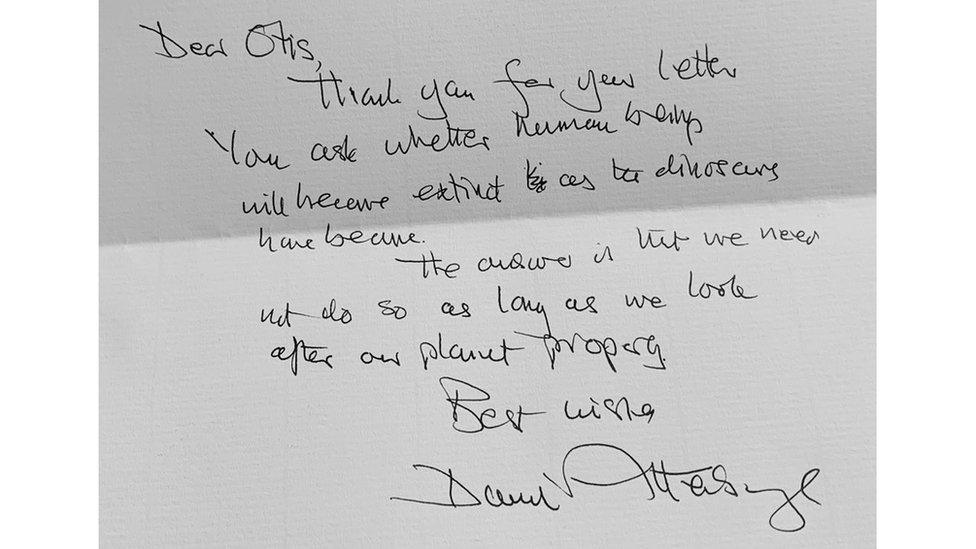 Dear Otis,
Thank you for your letter
You ask whether human beings
will become extinct as the dinosaurs
have become.
The answer is that we need
not do so as long as we look
after our planet properly.
Best wishes
David Attenborough